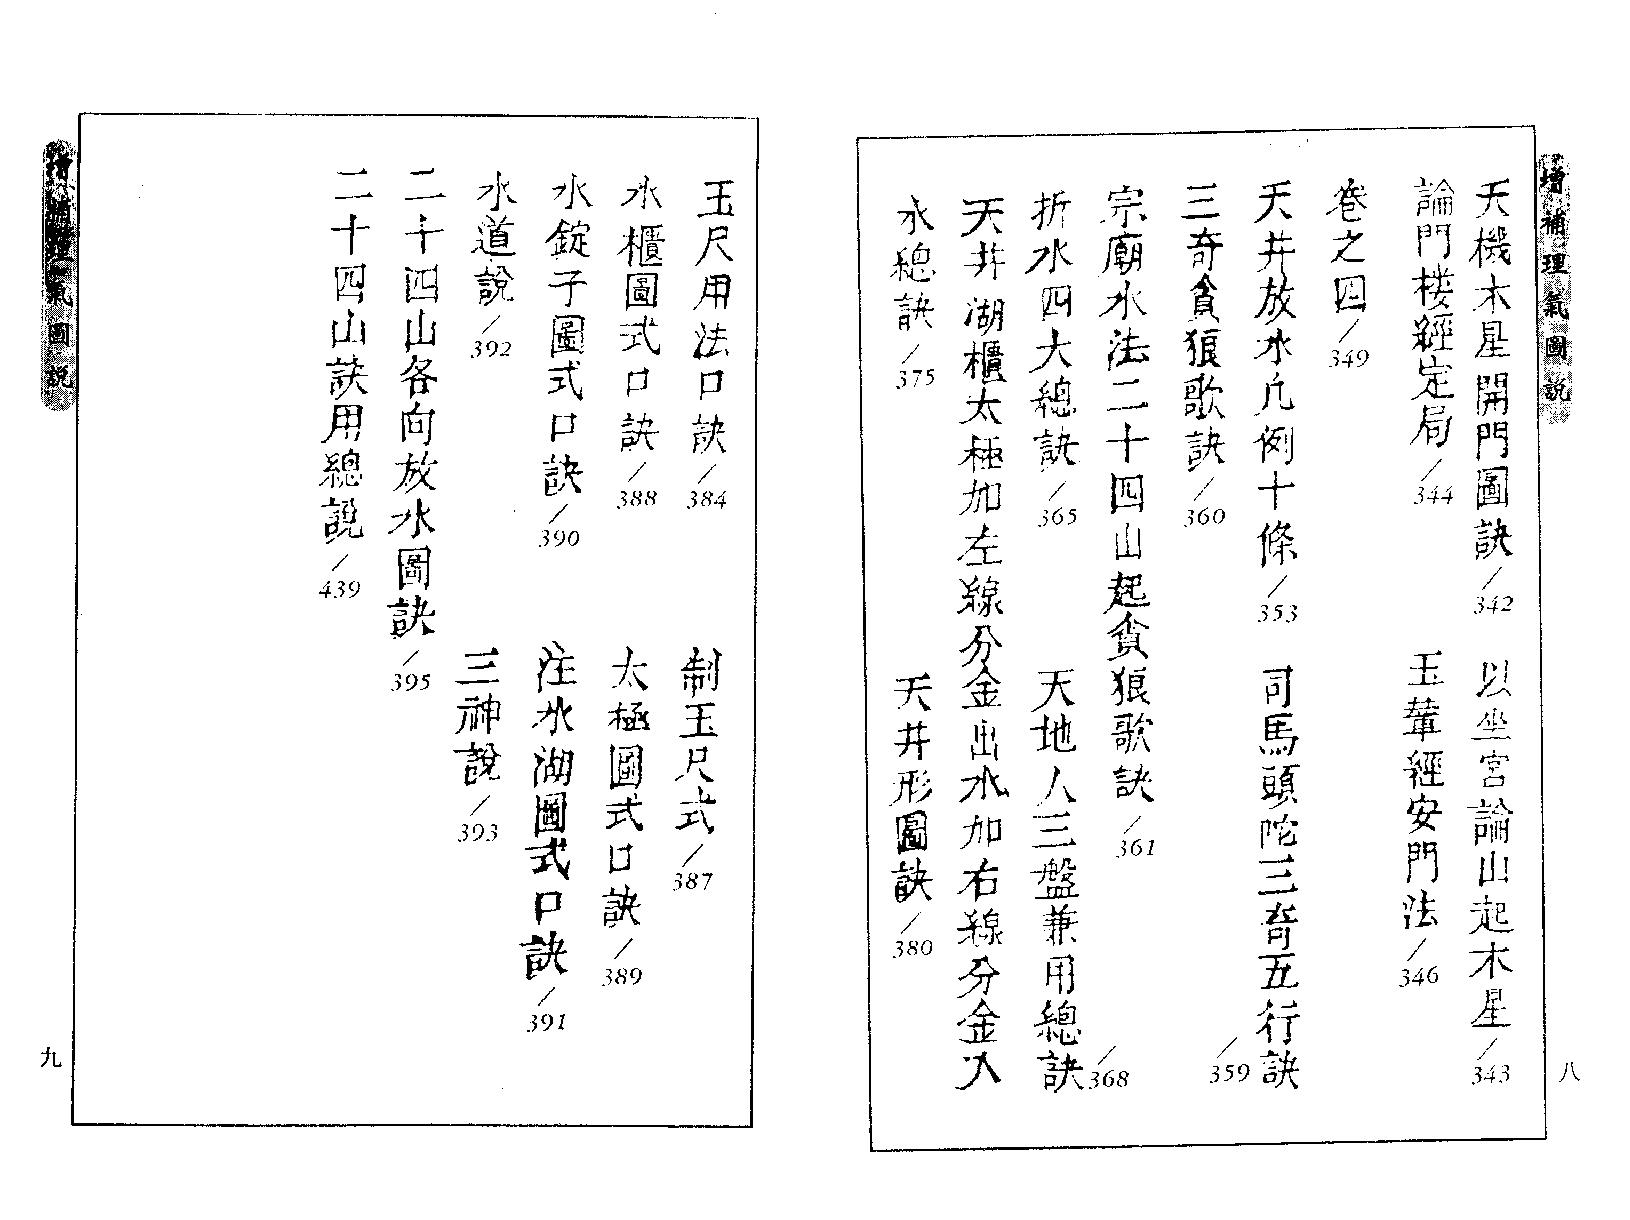 增補理氣圖説
天機木星開門圖訣/342 以坐宮論山起木星/343
論門楼經定局/344 玉輦經安門法/346
卷之四/349
天井放水凡例十條/353 司馬頭陀三奇五行訣/359
三奇貪狼歌訣/360
宗廟水法二十四山起貪狼歌訣/361
折水四大總訣/365 天地人三盤兼用總訣/368
天井湖櫃太極加左線分金出水加右線分金入
水總訣/375 天井形圖訣/380
八
玉尺用法口訣/384 制玉尺式/387
水櫃圖式口訣/388 太極圖式口訣/389
水錠子圖式口訣/390 注水湖圖式口訣/391
水道説/392 三神説/393
二十四山各向放水圖訣/395
二十四山訣用總説/439
增補理氣圖説
九